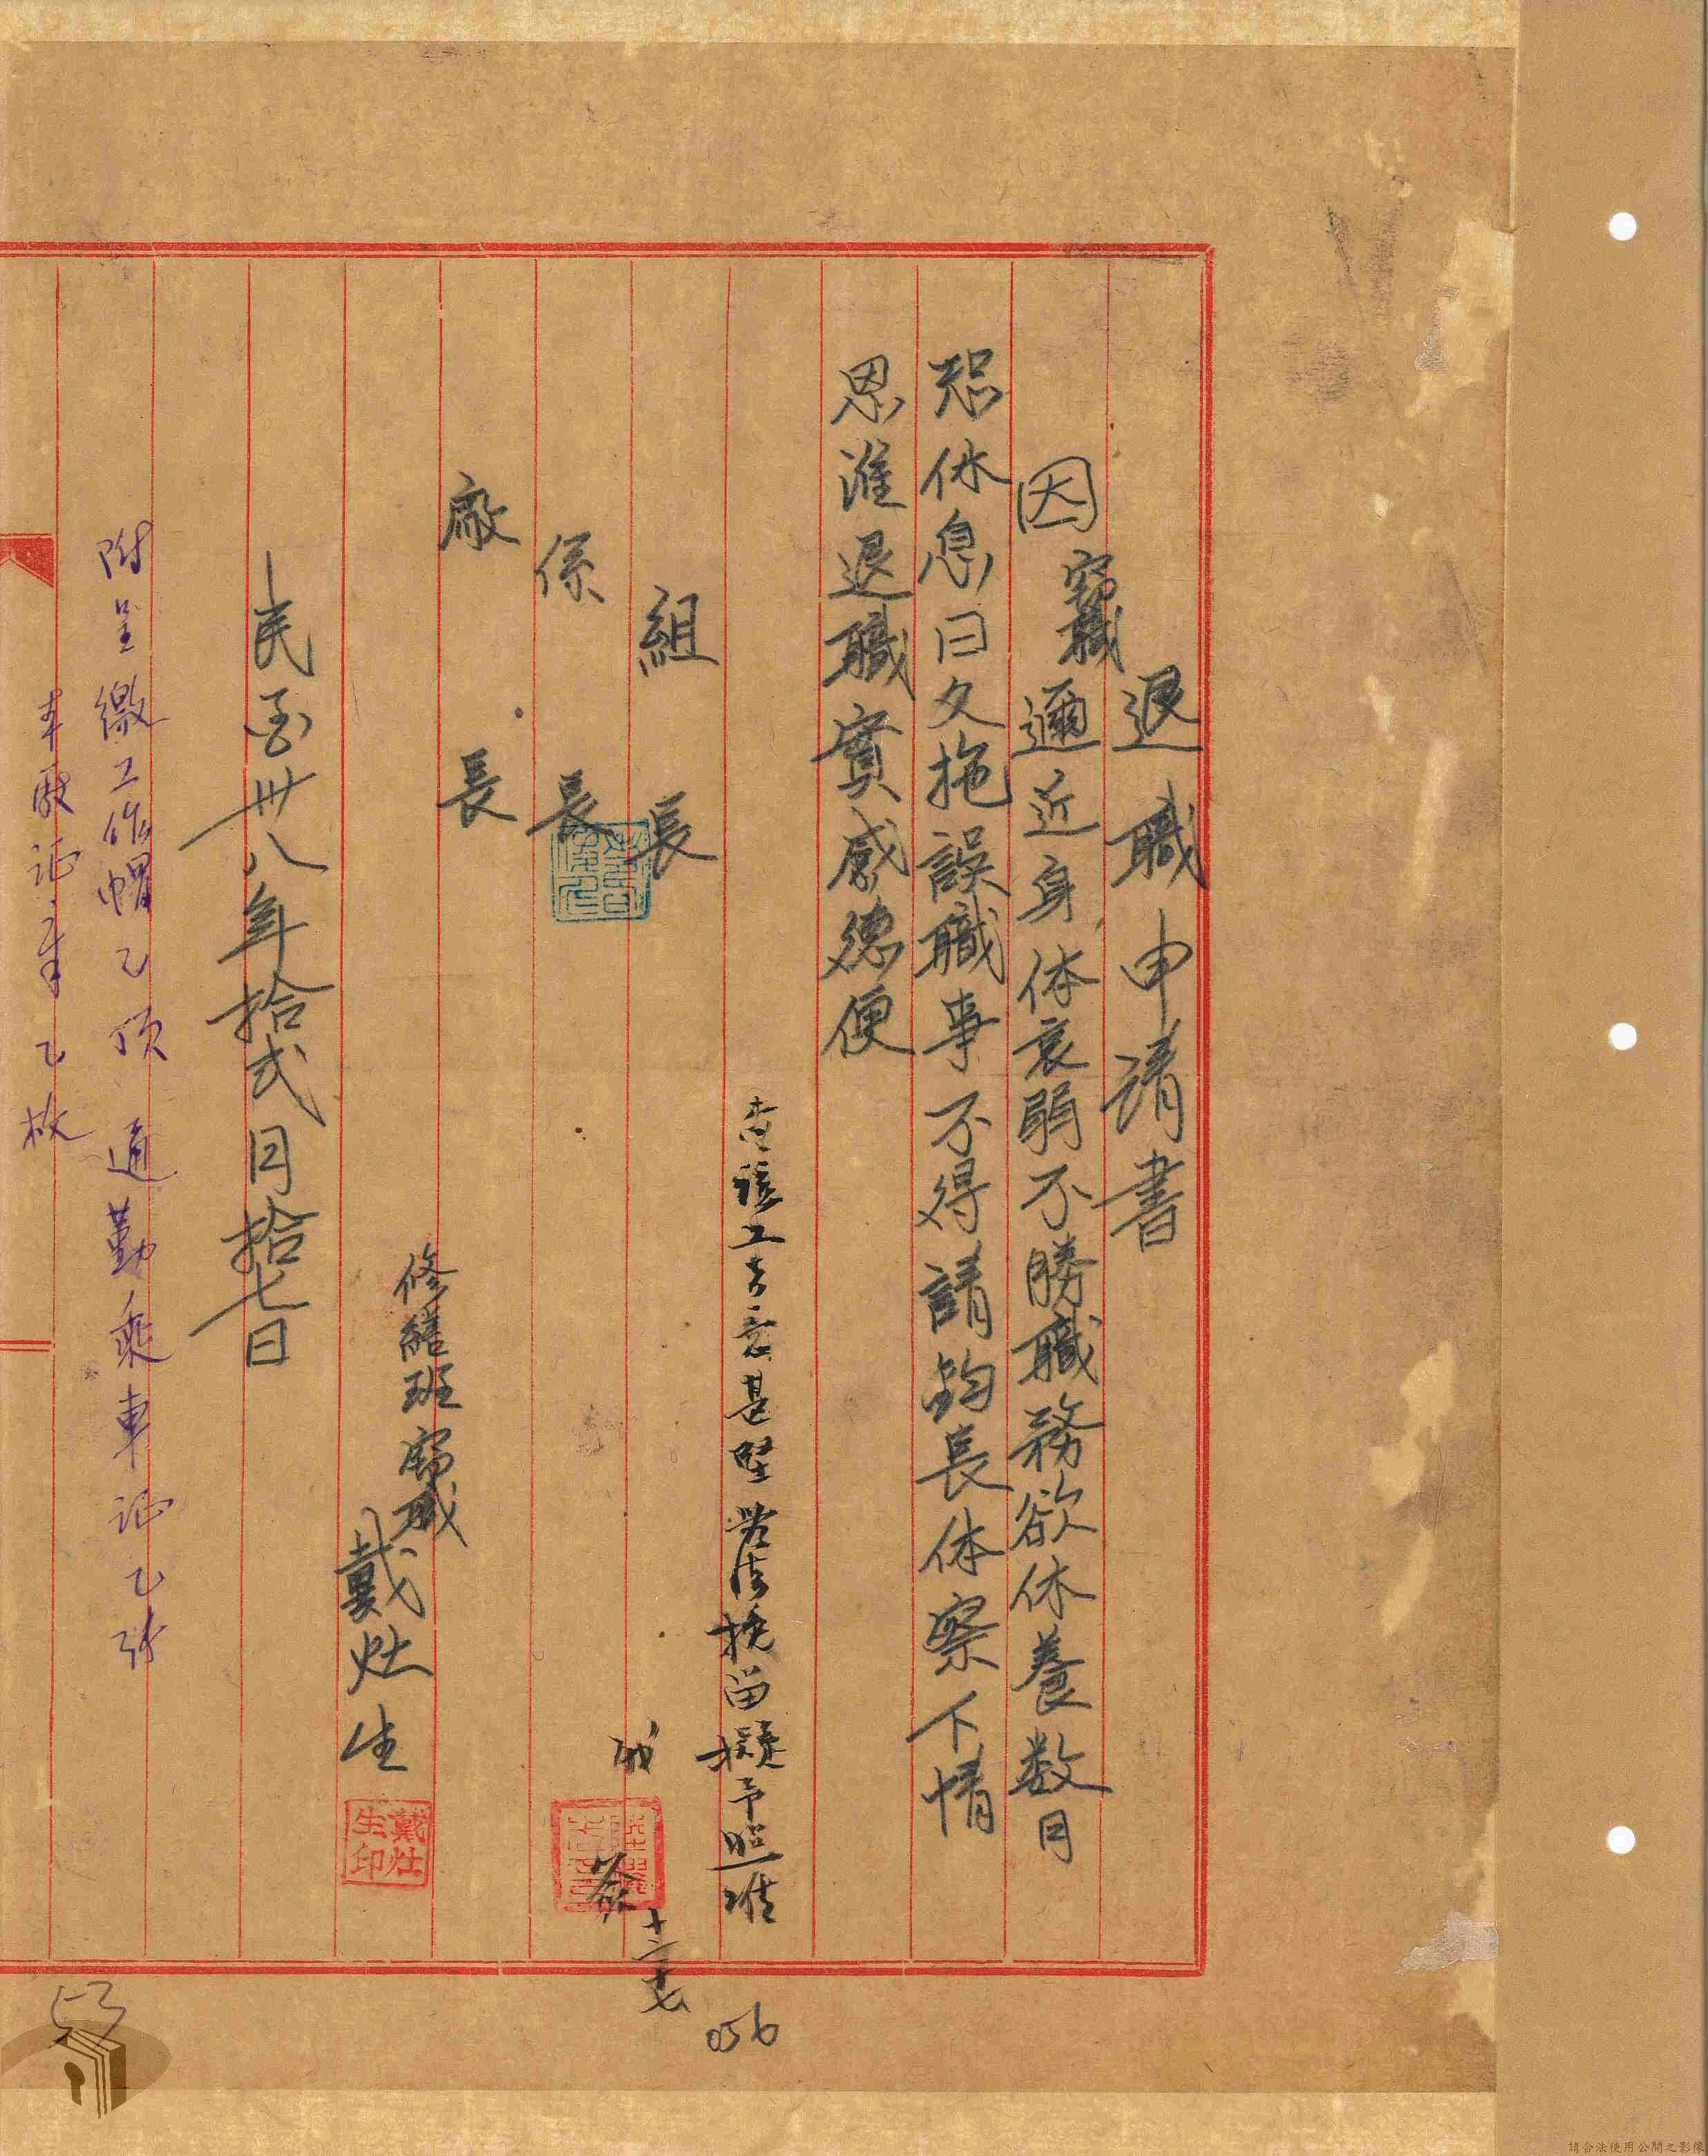 退職申請書
因竊職邇近身体衰弱不勝職務欲休養数月
恐休息日久拖誤職事不得請鈞長体察下情
恩准退職實感德便
查該工去意甚堅無法挽留擬予照准
職
簽
十二、十七
組長
係長
廠長
修繕班竊職
戴灶生
戴灶生印
民國卅八年拾弍月拾七日
附呈繳工作帽乙頂 通勤乘車证乙张
本廠证章乙枚
056
53
請合法使用公開之影像